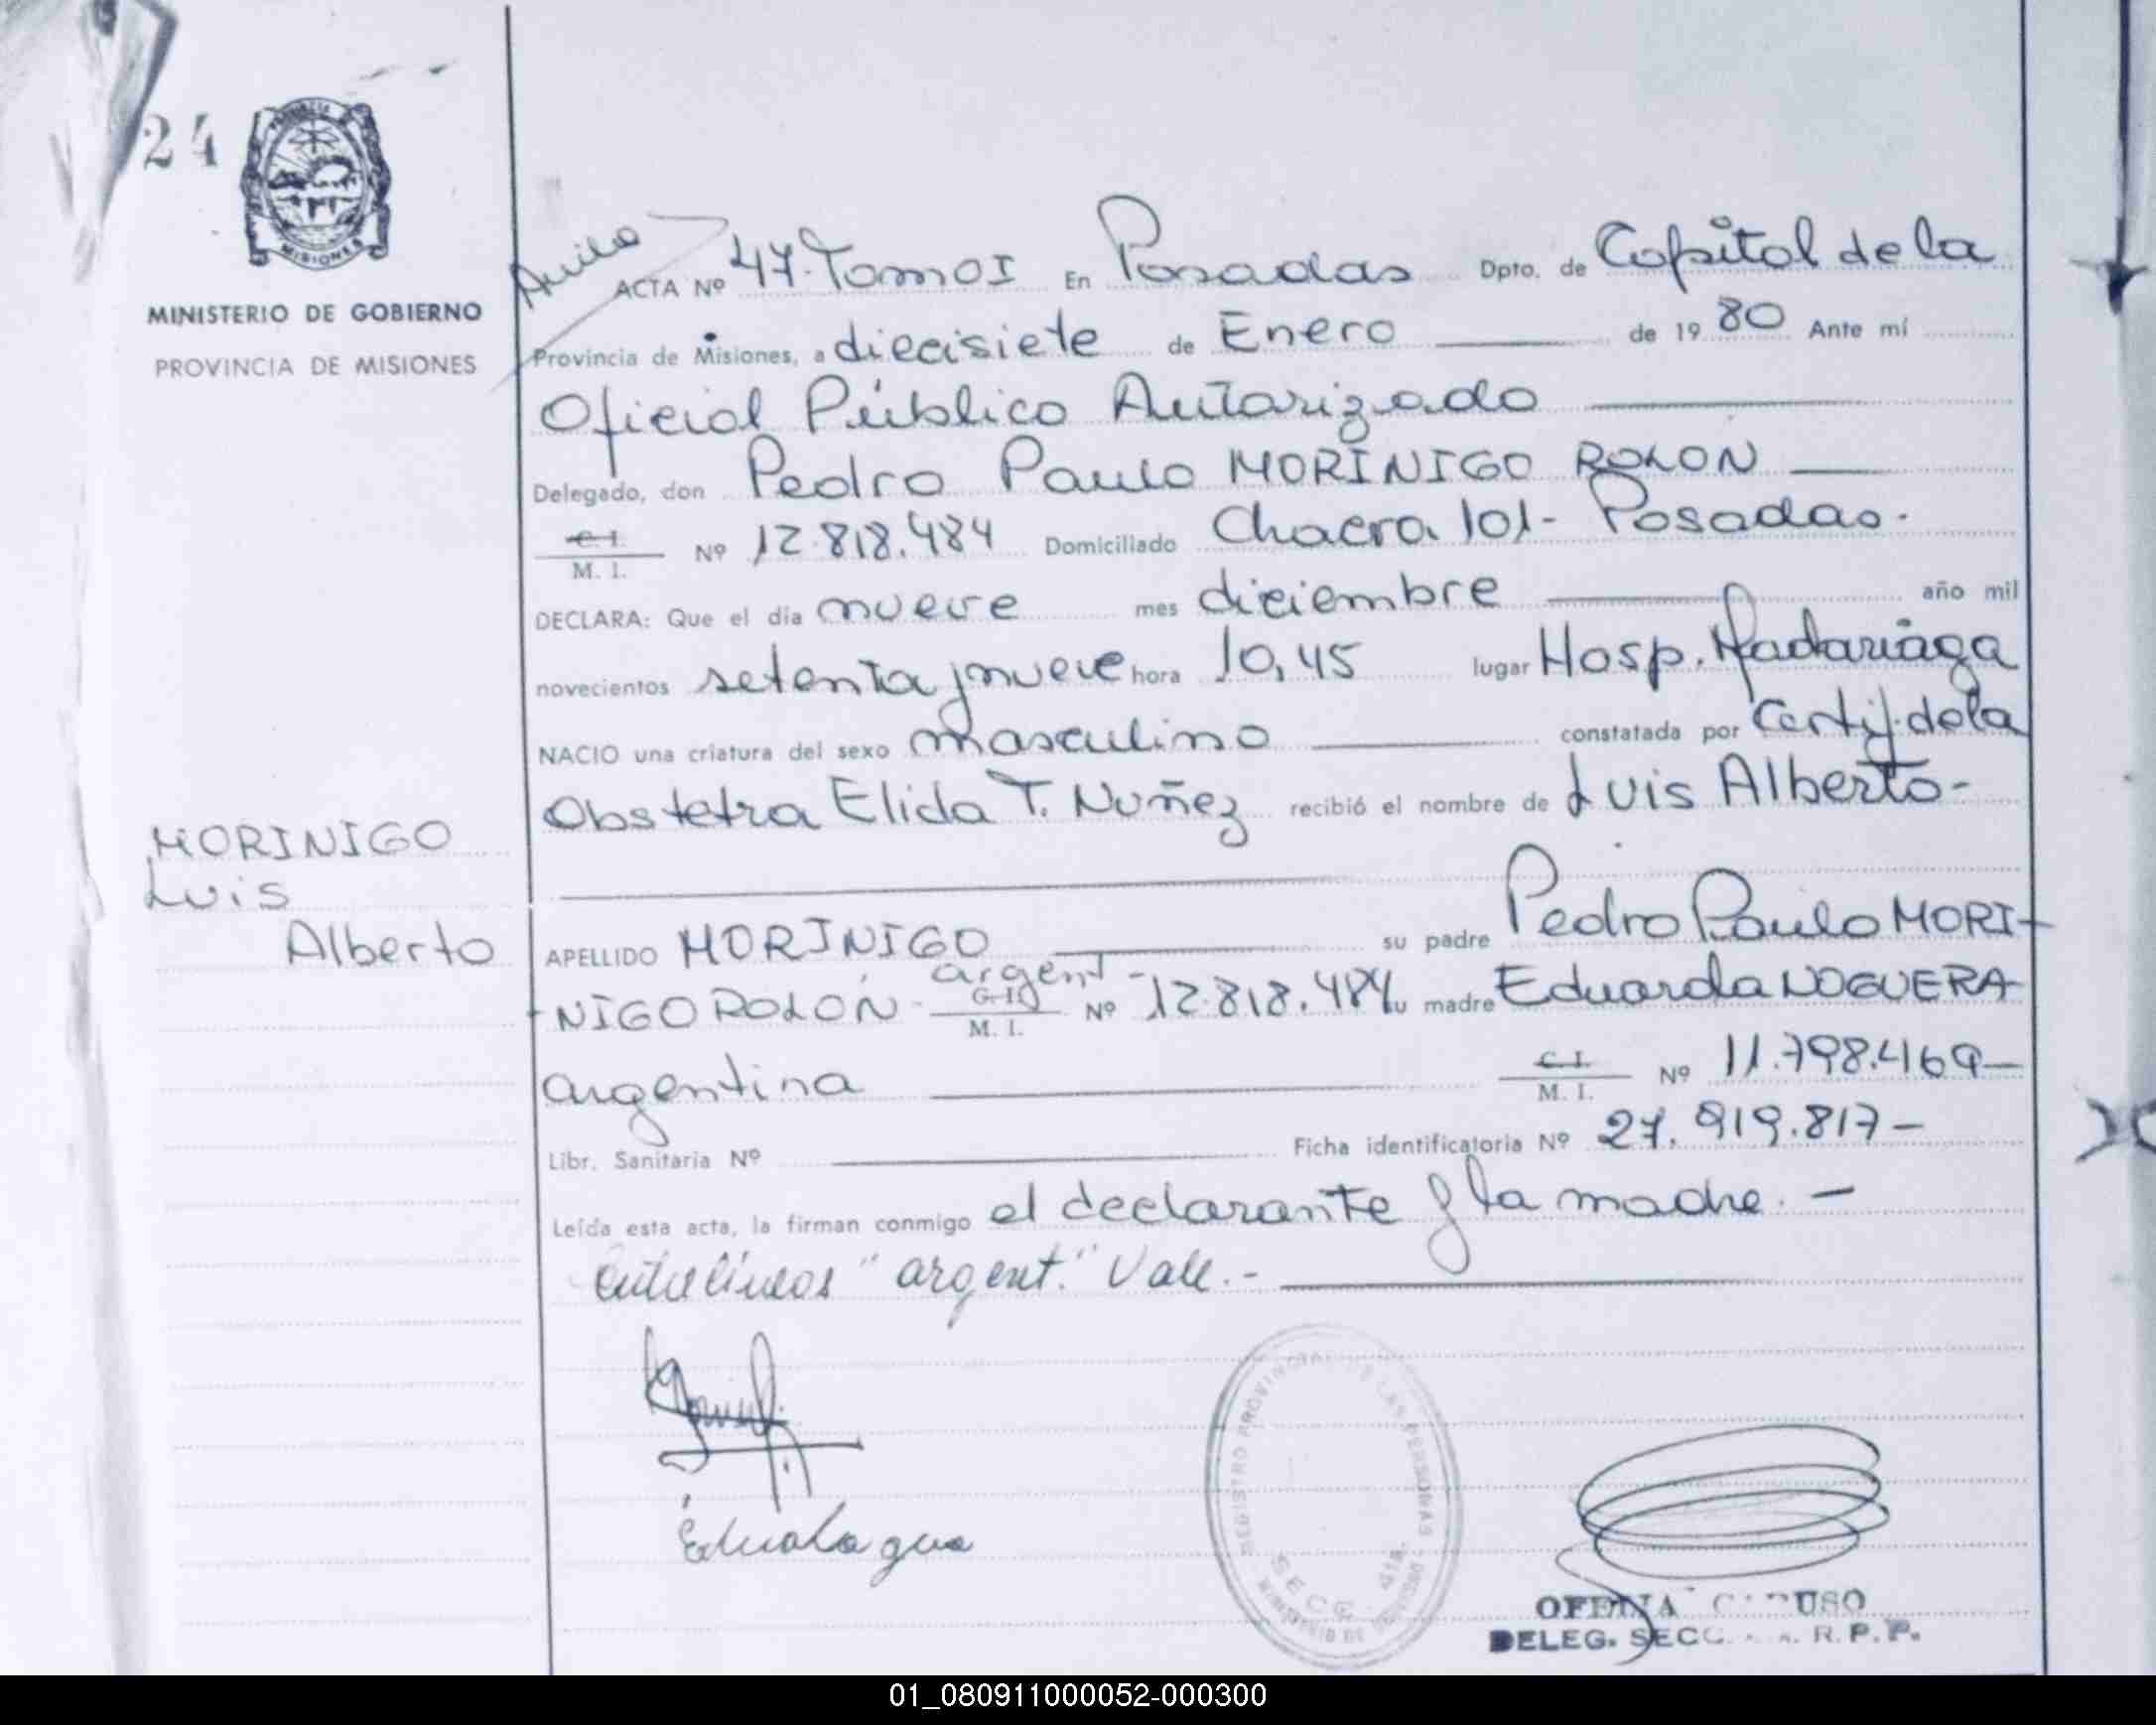 24
MISIONES
MINISTERIO DE GOBIERNO
PROVINCIA DE MISIONES
ACTA Nº 47. Tomo I En Posadas Dpto. de Capital de la
Provincia de Misiones, a diecisiete de Enero de 1980 Ante mí
Oficial Público Autorizado
Delegado, don Pedro Paulo MORINIGO ROLON
C. I.
M. I. Nº 12.818.484 Domiciliado Chacra 101- Posadas.
DECLARA: Que el día nueve mes diciembre año mil
novecientos setenta y nueve hora 10,45 lugar Hosp. Madariaga
NACIO una criatura del sexo masculino constatada por Certif. de la
Obstetra Elida T. Nuñez recibió el nombre de Luis Alberto-
MORINIGO
Luis
Alberto
APELLIDO MORINIGO su padre Pedro Paulo MORI-
argent -
NIGO ROLON - C. I. M. I. Nº 12.818.484 su madre Eduarda NOGUERA-
argentina C. I. M. I. Nº 11.798.469-
Libr. Sanitaria Nº Ficha identificatoria Nº 27.919.817-
Leída esta acta, la firman conmigo el declarante y la madre. -
entrelíneas "argent." Vale.-
REGISTRO PROVINCIAL DE LAS PERSONAS
SECC. 4ta.
MINISTERIO DE GOBIERNO
DELEG. SECC. R. P. P.
01_080911000052-000300